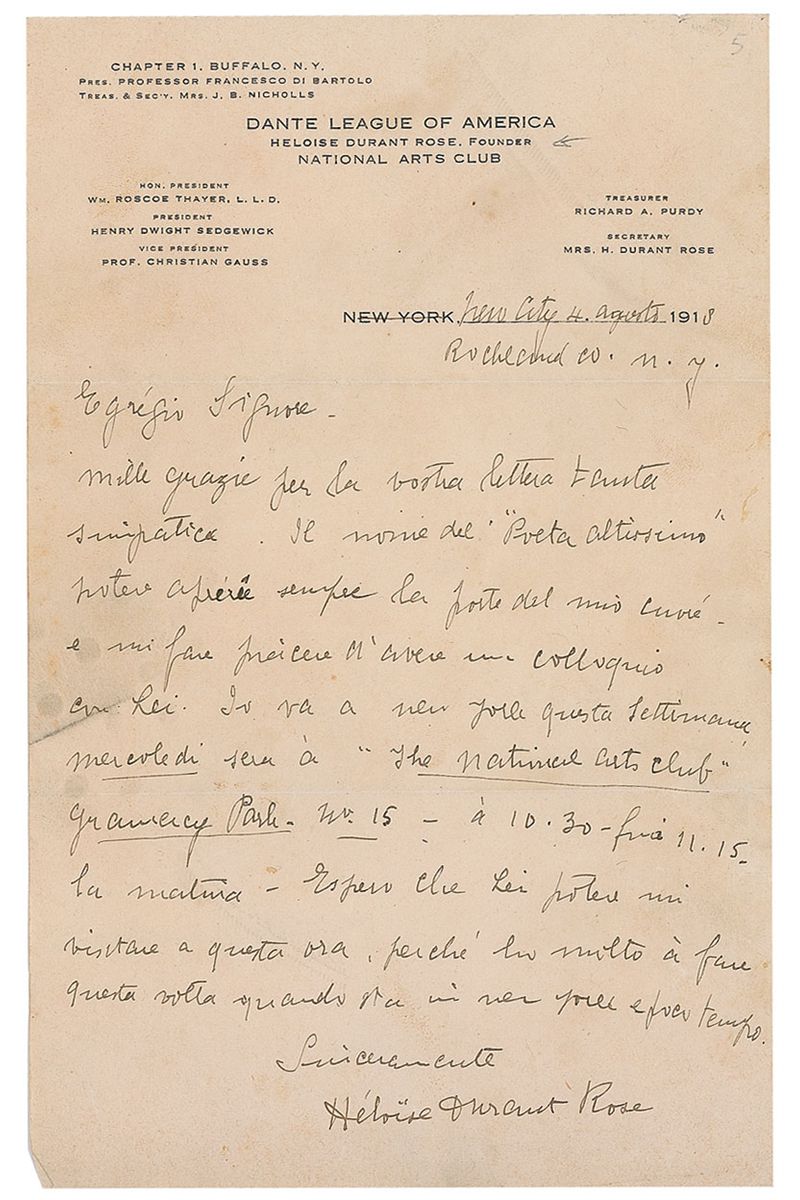 5
CHAPTER 1, BUFFALO, N.Y.
PRES. PROFESSOR FRANCESCO DI BARTOLO
TREAS. & SEC'Y. MRS. J. B. NICHOLLS
DANTE LEAGUE OF AMERICA
HELOISE DURANT ROSE, FOUNDER
NATIONAL ARTS CLUB
HON. PRESIDENT
WM. ROSCOE THAYER, L. L. D.
PRESIDENT
HENRY DWIGHT SEDGEWICK
VICE PRESIDENT
PROF. CHRISTIAN GAUSS
TREASURER
RICHARD A. PURDY
SECRETARY
MRS. H. DURANT ROSE
NEW YORK, New City 4. agosto 1918
Rockland Co. n. y.
Egrégio Signore -
mille grazie per la vostra lettera tanta
simpatica. Il nome del "Poeta altissimo"
potere sempre la porte del mio
e mi fare piacere d'avere un colloquio
con Lei. Io va a new york questa Settimana,
mercoledi sera à "The national arts club"
Gramercy Park - No. 15 - à 10.30 - 11.15 -
la matina - Espero che Lei potere mi
visitare a questa ora, perché ho molto à fare
questa volta quando sta in new york e poco tempo.
Sinceramente
Héloïse Durant Rose